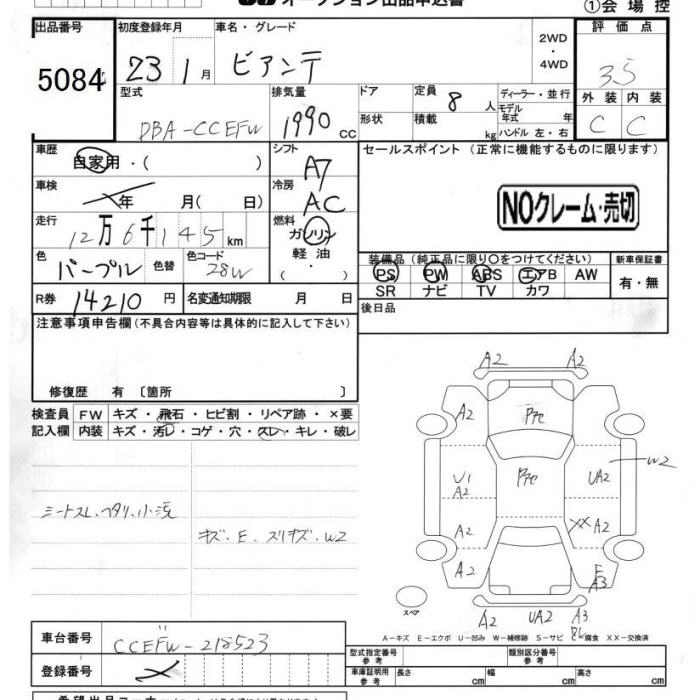 オークション出品申込書
①会場控
出品番号
5084
初度登録年月
23 1月
車名・グレード
ビアンテ
2WD
・
4WD
評価点
3.5
外装 内装
C C
型式
DBA-CCEFW
排気量
1990 CC
ドア
形状
定員 8 人
積載 kg
ディーラー・並行
モデル年式 年
ハンドル 左・右
車歴
自家用・( )
シフト
A7
セールスポイント (正常に機能するものに限ります)
NOクレーム・売切
車検
年 月( 日)
冷房
AC
走行
12万6千145km
燃料
ガソリン
軽油
( ・ )
色
パープル
色替
色コード
28W
装備品(純正品に限り○をつけてください)
PS PW ABS エアB AW
SR ナビ TV カワ
新車保証書
有・無
R券 14210円
名変通知期限 月 日
後日品
注意事項申告欄(不具合内容等は具体的に記入して下さい)
修復歴 有 〔箇所 〕
検査員
記入欄
FW キズ・飛石・ヒビ割・リペア跡・×要
内装 キズ・汚レ・コゲ・穴・スレ・キレ・破レ
シートスレ、ヘタリ、小汚
キズ、E、スリキズ、W2
A2 A2
A2 Pﾀﾋ
U1
A2
UA2
W2
A2 XXA2
A2 E
A3
スペア
A2 UA2 A3
A-キズ E-エクボ U-凹み W-補修跡 S-サビ C-腐食 XX-交換済
車台番号 CCEFW-218523
登録番号
型式指定番号
参考
類別区分番号
参考
車庫証明用
参考
長さ cm 幅 cm 高さ cm